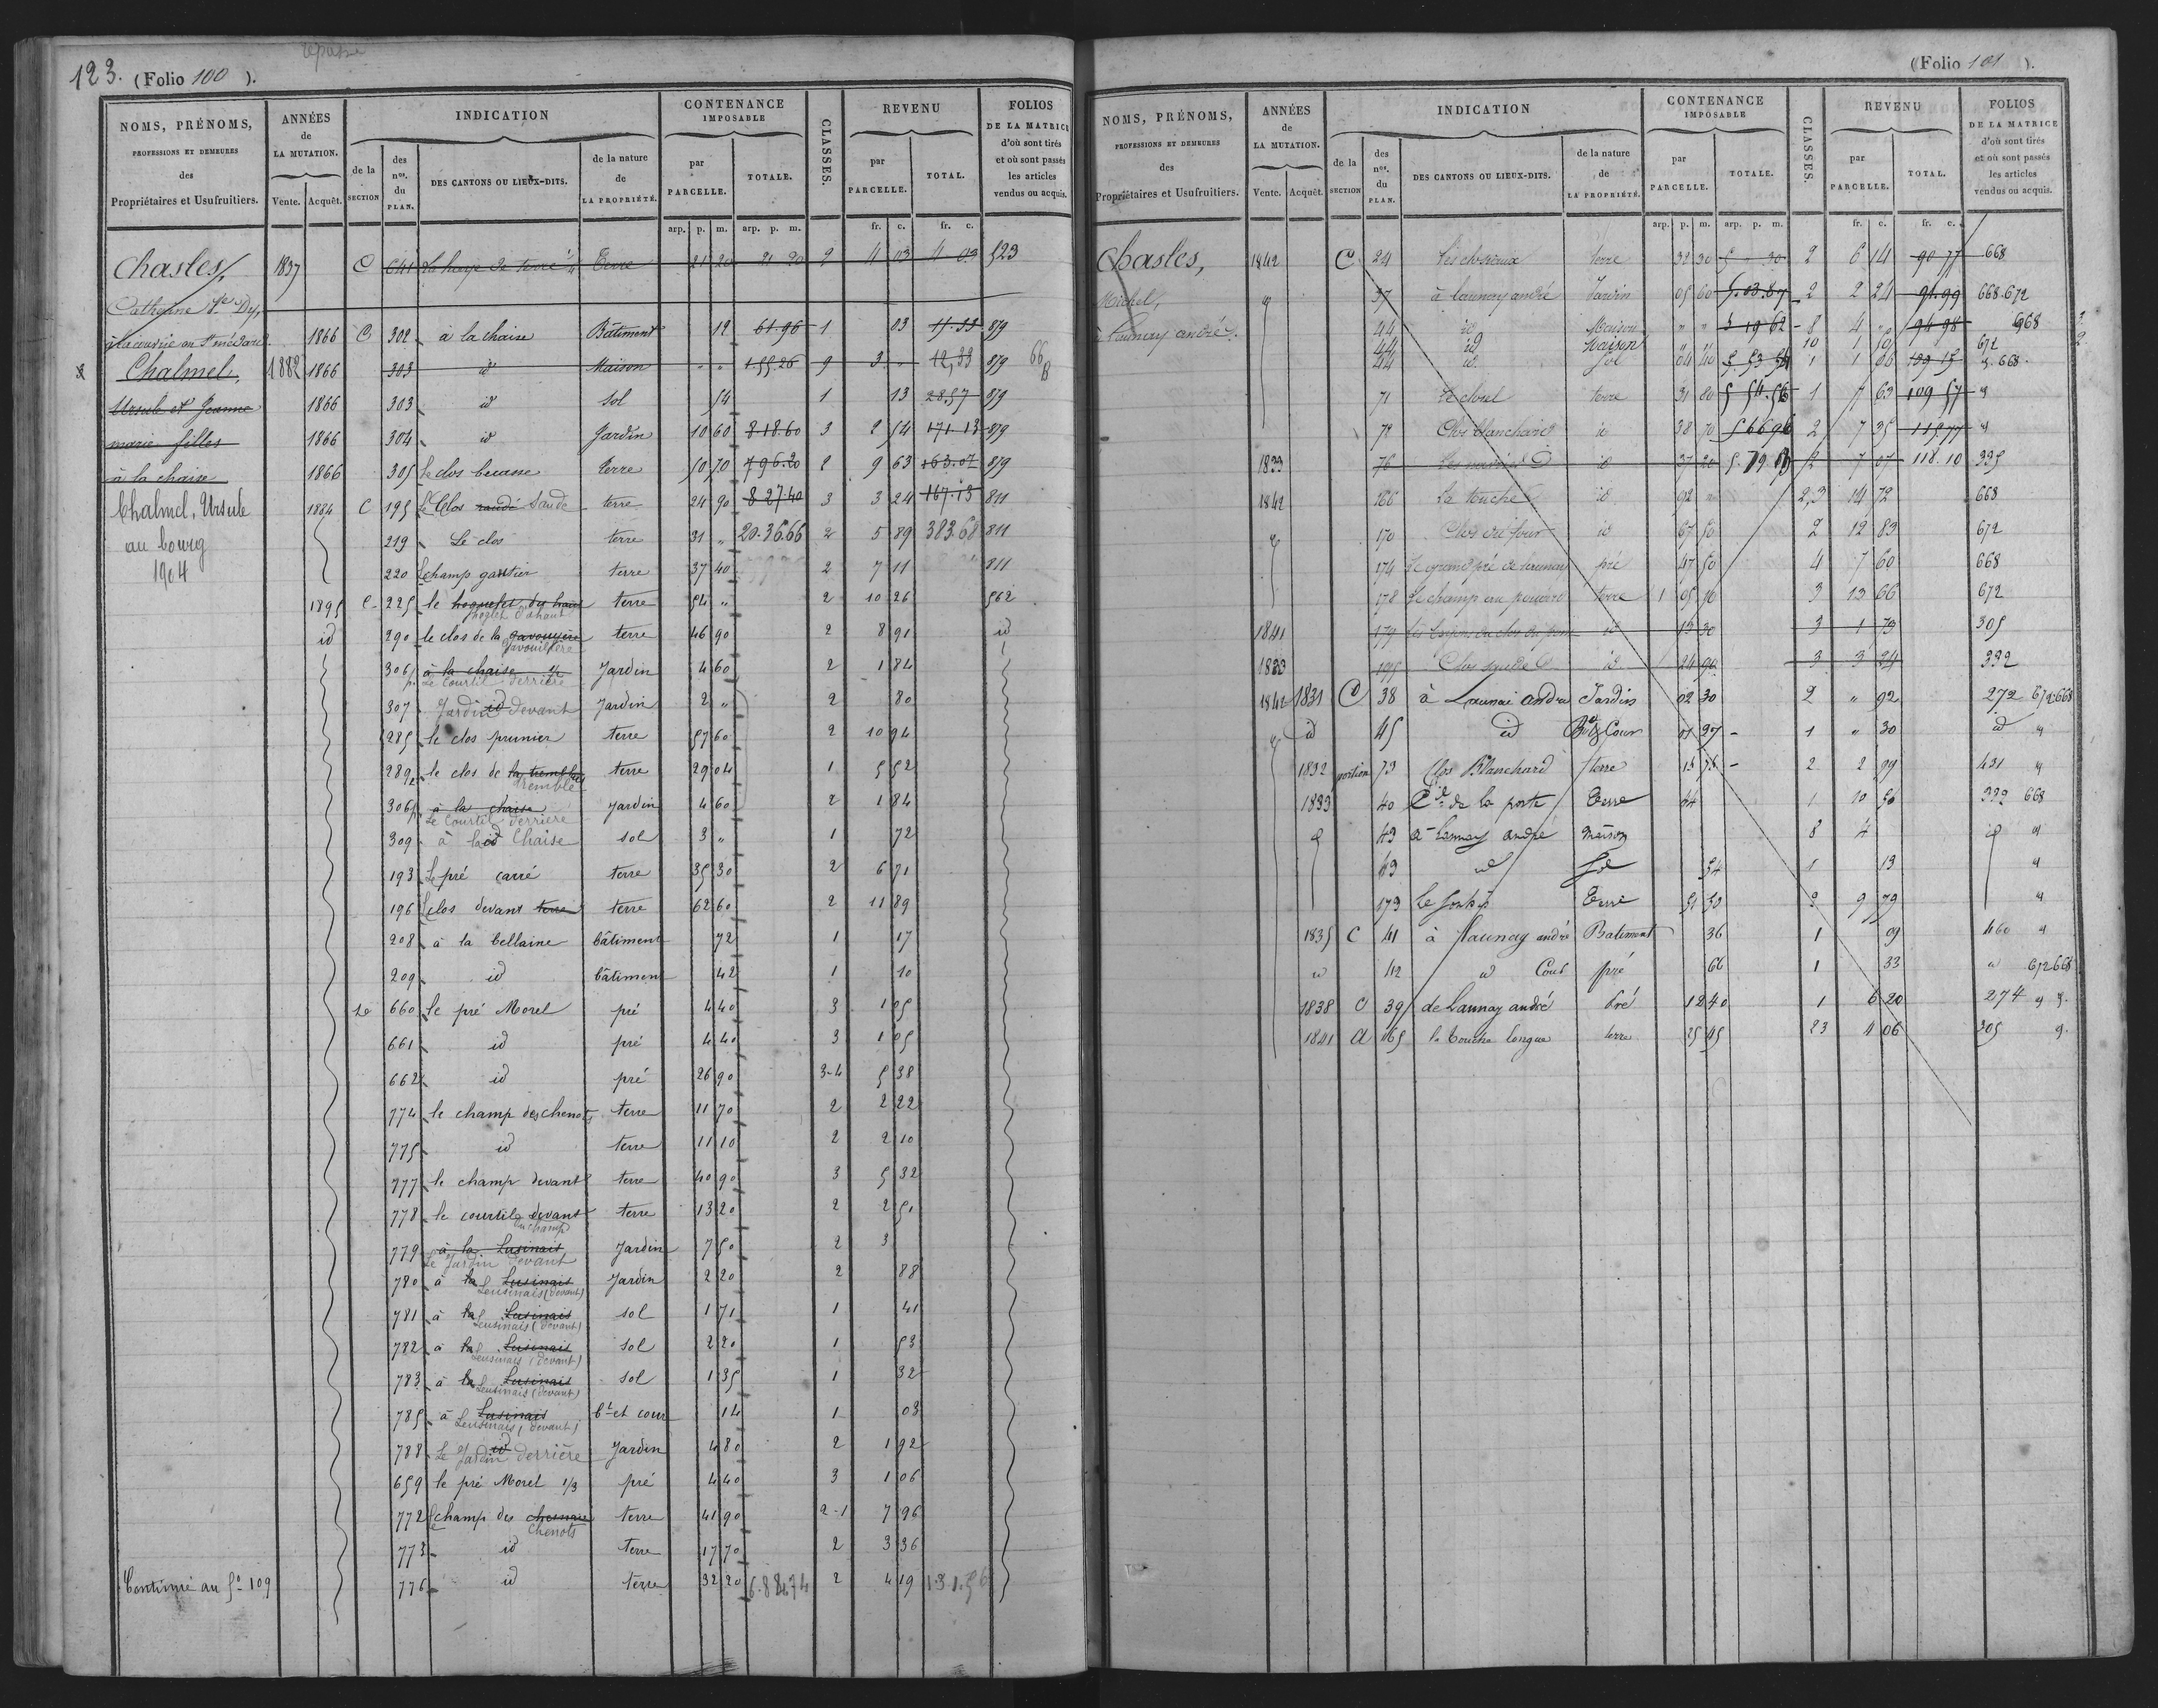 123. (Folio 100 ).
NOMS, PRÉNOMS,
PROFESSIONS ET DEMEURES
des
Propriétaires et Usufruitiers.
ANNÉES
de
LA MUTATION.
Vente. Acquêt.
INDICATION
de la
SECTION
des
nos.
du
PLAN.
DES CANTONS OU LIEUX-DITS.
de la nature
de
LA PROPRIÉTÉ.
CONTENANCE
IMPOSABLE
par
PARCELLE.
TOTALE.
arp. p. m. arp. p. m.
CLASSES.
REVENU
par
PARCELLE.
TOTAL.
fr. c. fr. c.
FOLIOS
DE LA MATRICE
d'où sont tirés
et où sont passés
les articles
vendus ou acquis.
Chasles, 1837 C 641 Terre 21 20 21 20 2 4 03 4 03 523
Catherine
1866 C 302 à la chaise Bâtiment 12 61.96 1 03 879
Chalmel, 1882 1866 303 id Maison " " 1.55.26 9 3 " 12,33 879 66
Ursule et Jeanne 1866 303 id Sol 54 1 13 28.57 879
marie filles 1866 304 id Jardin 10 60 8.18.60 3 2 54 171.13 879
à la chaise 1866 305 Le clos becasse terre 50 70 7.96.20 2 9 63 163.07 879
Chalmel, Ursule 1884 C 195 Le Clos Saude terre 24 90 8.27.40 3 3 24 167.13 811
au bourg 219 Le clos terre 31 " 20.36.66 2 5 89 383.68 811
1904 220 Le champ gautier terre 37 40 2 7 11 811
1895 C 225 le terre 54 " 2 10 26 562
id 290 le clos de la terre 46 90 2 8 91 id
306p à la chaise 1/2 Jardin 4 60 2 1 84
Le Courtil derrière
307 Jardin id devant Jardin 2 " 2 80
285 le clos prunier terre 57 60 2 10 94
289 le clos de la tremblais terre 29 04 1 5 52
306p à la chaise Jardin 4 60 2 1 84
Le Courtil derrière
309 à la id Chaise sol 3 " 1 72
193 Le pré carré terre 35 30 2 6 71
196 Le clos devant terre terre 62 60 2 11 89
208 à la bellaine bâtiment 72 1 17
209 id bâtiment 42 1 10
660 le pré Morel pré 4 40 3 1 05
661 id pré 4 40 3 1 05
662 id pré 26 90 3-4 5 38
774 le champ des chenots terre 11 70 2 2 22
775 id terre 11 10 2 2 10
777 le champ devant terre 40 90 3 5 32
778 le courtil devant terre 13 20 2 2 51
du champ
779 à la Lusinais Jardin 7 50 2 3
Le Jardin devant
780 à la Lusinais Jardin 2 20 2 88
Leusinais (devant)
781 à la Lusinais sol 1 71 1 41
Leusinais (devant)
782 à la Lusinais sol 2 20 1 53
Leusinais (devant)
783 à la Lusinais sol 1 35 1 32
Leusinais (devant)
785 à Lusinais bt et cour 14 1 03
Leusinais (devant)
788 Le Jardin id derrière Jardin 4 80 2 1 92
659 le pré Morel 1/3 pré 4 40 3 1 06
772 Le champ des terre 41 90 2-1 7 96
chenots
773 id terre 17 70 2 3 36
Continué au fo 109 776 id terre 32 20 6.88.74 2 4 19 131.56
(Folio 101 ).
NOMS, PRÉNOMS,
PROFESSIONS ET DEMEURES
des
Propriétaires et Usufruitiers.
ANNÉES
de
LA MUTATION.
Vente. Acquêt.
INDICATION
de la
SECTION
des
nos.
du
PLAN.
DES CANTONS OU LIEUX-DITS.
de la nature
de
LA PROPRIÉTÉ.
CONTENANCE
IMPOSABLE
par
PARCELLE.
TOTALE.
arp. p. m. arp. p. m.
CLASSES.
REVENU
par
PARCELLE.
TOTAL.
fr. c. fr. c.
FOLIOS
DE LA MATRICE
d'où sont tirés
et où sont passés
les articles
vendus ou acquis.
Chasles, 1842 C 24 terre 32 30 2 6 14 90 77 668
Michel, 37 à launay andré Jardin 05 60 5.03.87 2 2 24 91.99 668.672
à launay andré. 44 id Maison " " 5 19 62 8 4 " 94 98 668
44 id Maison 10 1 50 672
44 id. sol 04 40 1 1 06 668
71 terre 31 80 5 54.56 1 7 63 109 57
72 Clos blanchard id 38 70 5 66 96 2 7 35 115 77
1833 76 id 37 20 5.79.69 2 7 07 118.10 335
1842 166 La touche id 92 " 2,3 14 72 668
170 Clos du four id 67 50 2 12 83 672
174 Le grand pré de launay pré 47 50 4 7 60 668
178 Le champ terre 1 05 10 3 13 66 672
1841 179 id 13 30 3 1 73 305
1833 195 Clos id 24 90 3 3 24 332
1842 1831 C 38 à Launai andré Jardin 02 30 2 " 92 272 672.668
id 45 id Bat. & Cour 01 27 1 " 30 id
1832 portion 73 Clos Blanchard terre 15 75 2 2 99 431
1833 40 de la porte Terre 44 1 10 56 332 668
43 à Launay andré maison 8 4
43 id Sol 54 1 13
173 Terre 51 50 2 9 79
1835 C 41 à Launay andré Batiment 36 1 09 460
id 42 id Cour pré 66 1 33 672 668
1838 C 39 de Launay andré Pré 12 40 1 6 20 274
1841 A 165 la Touche longue terre 25 45 23 4 06 305